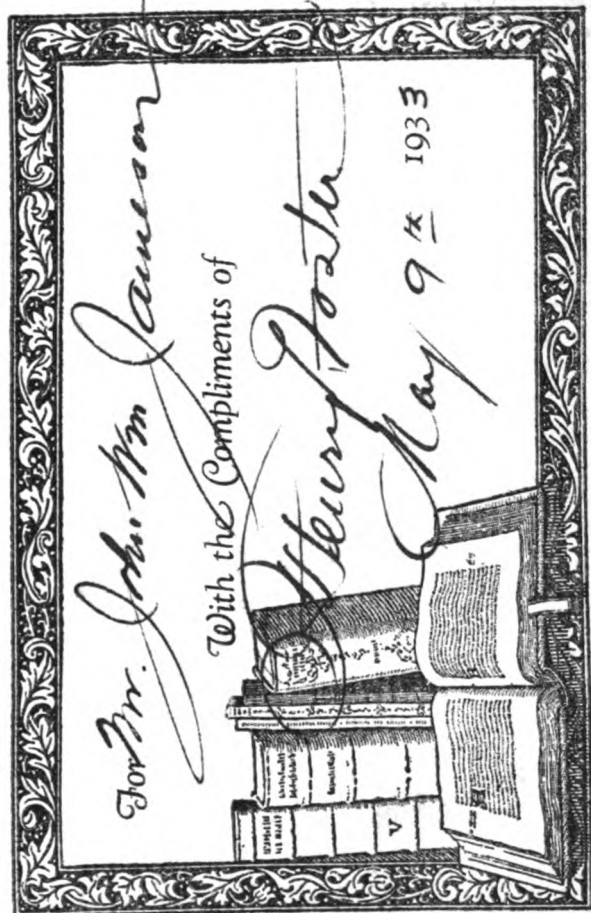 For Mr. John Wm Jameson
With the Compliments of
Henry Foster
May 9th 1933
V